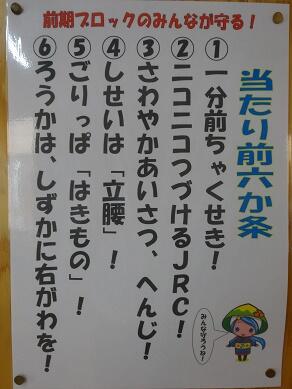 前期ブロックのみんなが守る！
当たり前六か条
①一分前ちゃくせき！
②ニコニコつづけるJRC！
③さわやかあいさつ、へんじ！
④しせいは「立腰」！
⑤ごりっぱ「はきもの」！
⑥ろうかは、しずかに右がわを！
みんな守ろうね！